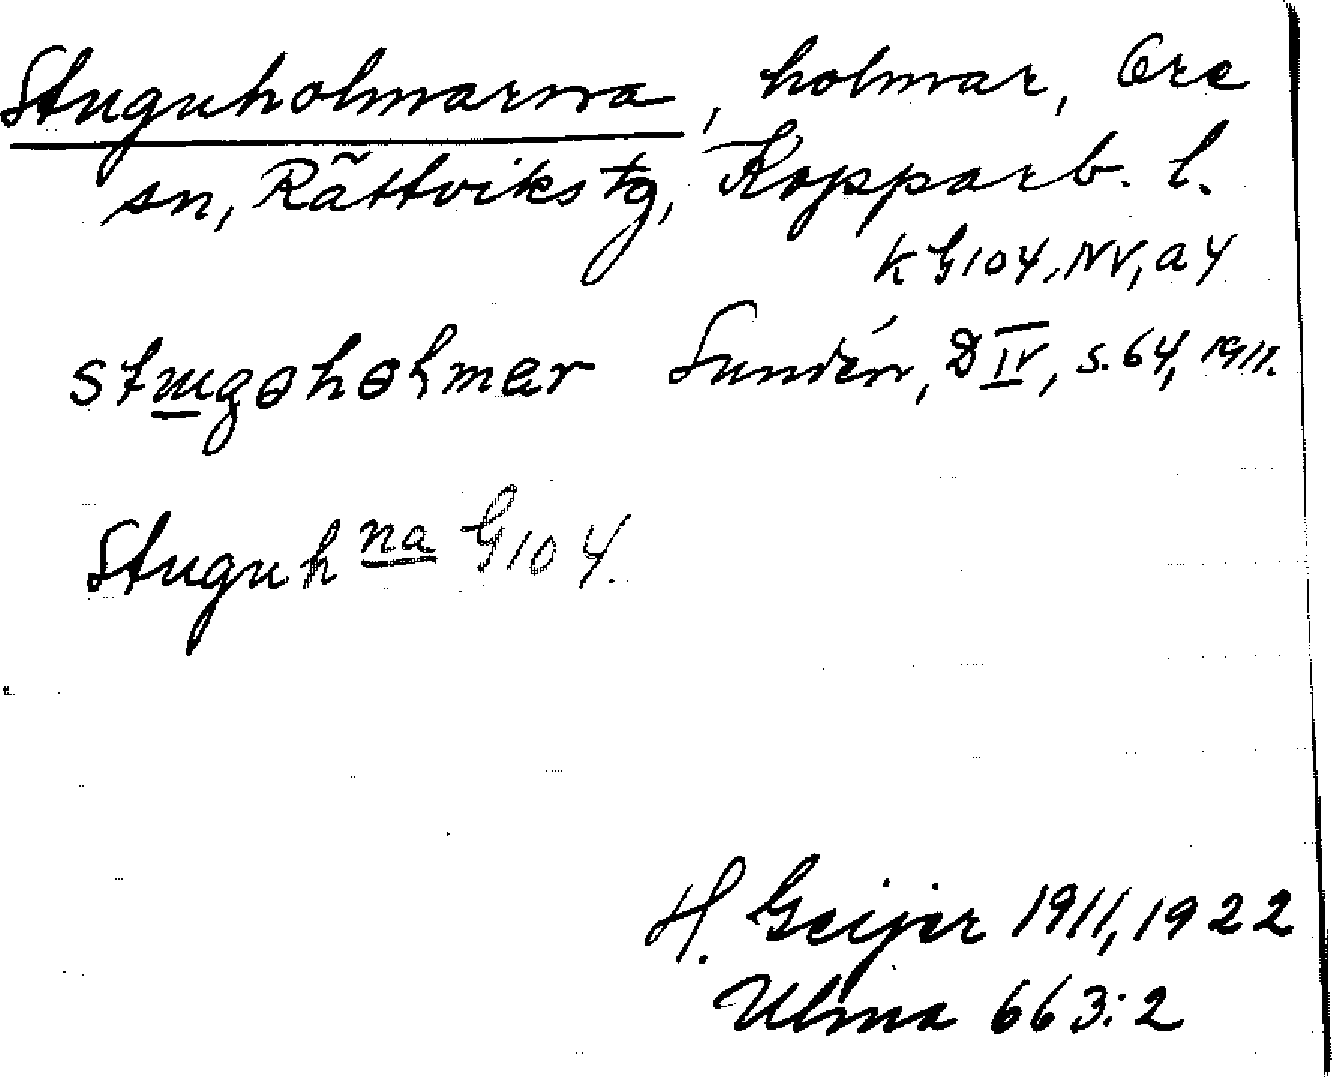 Stuguholmarna, holmar, Ore
sn, Rättviks tg, Kopparb. l.
k G104, NV, a 4
Sundén, D IV, s. 64, 1911.
Stuguh na G104.
H. Geijer 1911, 1922
Ulma 663:2